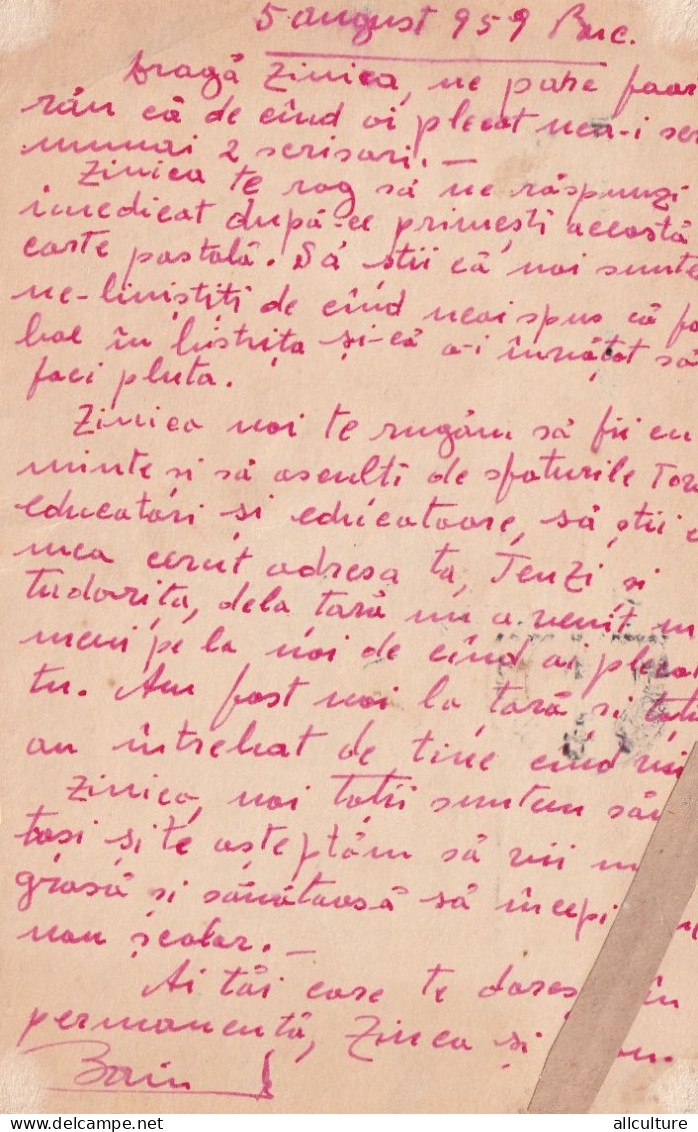 5 august 959 Buc.
Dragă Zinica, ne pare foar
rău că de cînd ai plecat nea-i scr
numai 2 scrisori. —
Zinica te rog să ne răspunzi
imedicat după-ce primești această
carte postală. Să stii că noi sunte
ne-liniștiți de cînd neai spus că fa
bae în bistrița și-că a-i învățat să
faci pluta.
Zinica noi te rugăm să fii cu
minte si să asculti de sfaturile Tova
educatori și educatoare, să știi c
mea cerut adresa ta, Tenzi si
tudorița, dela tară nu a venit ni
meni pe la noi de cînd ai plecat
tu. Am fost noi la tară si toti
au întrebat de tine cînd vii
Zinica, noi totii suntem săn
tosi și te așteptăm să vii
grasă si sănătoasă să începi
nou școlar. —
Ai tăi care te doresc în
permanentă, Zinca si
allculture